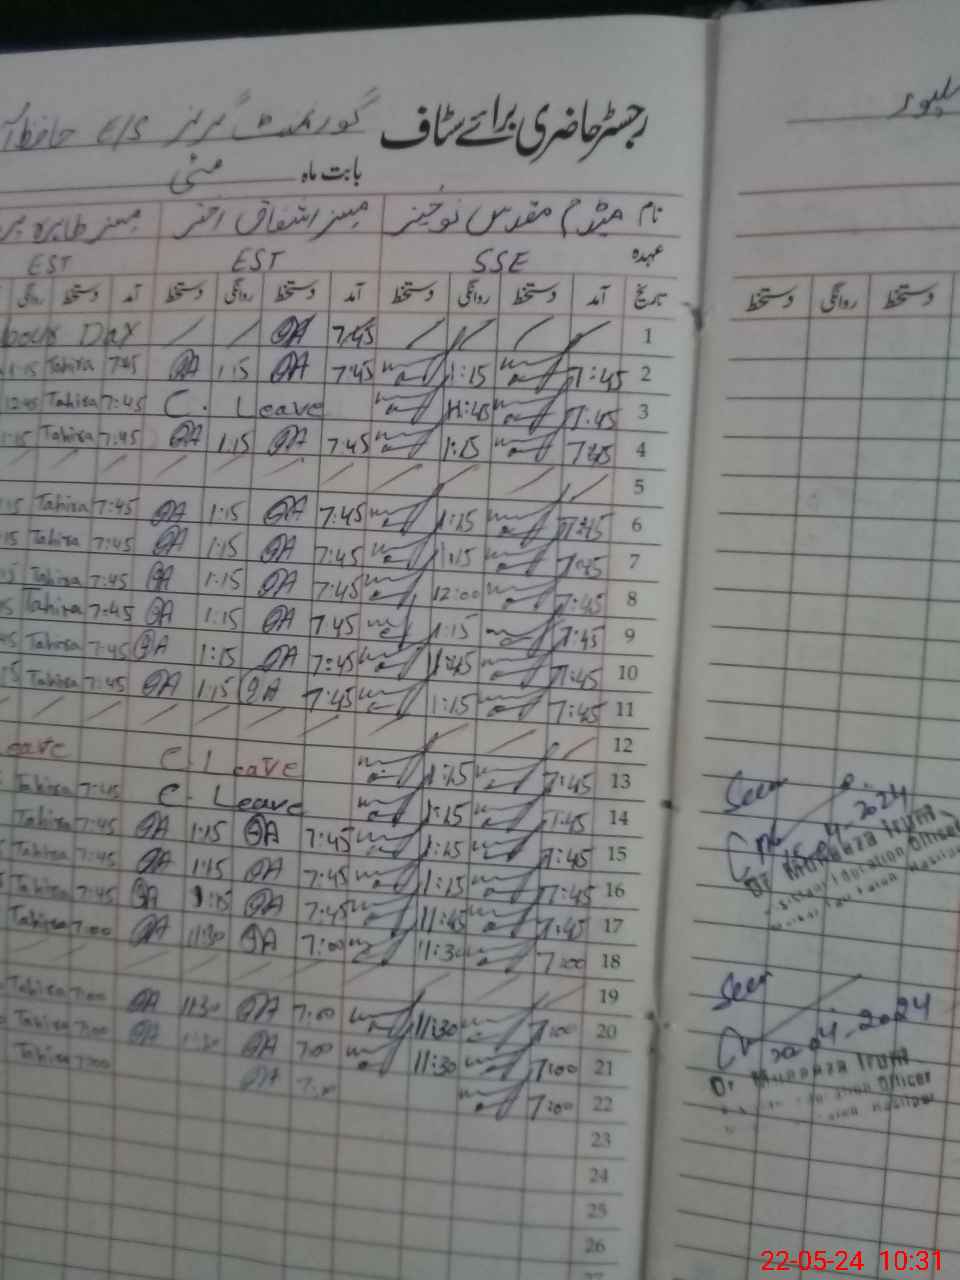 رجسٹر حاضری برائے سٹاف گورنمنٹ گرلز E/S
بابت ماہ مئی
نام میڈم مقدس نوخیز مسز اشفاق اختر مسز طاہرہ
عہدہ SSE EST EST
تاریخ آمد دستخط روانگی دستخط آمد دستخط روانگی دستخط آمد دستخط روانگی
دستخط روانگی دستخط
1 7:45 QA Day
2 7:45 1:15 7:45 QA 1:15 QA 7:45 Tahira 1:15
3 7:45 11:45 C. Leave 7:45 Tahira 12:45
4 7:45 1:15 7:45 QA 1:15 QA 7:45 Tahira 1:15
5
6 7:45 1:15 7:45 QA 1:15 QA 7:45 Tahira
7 7:45 1:15 7:45 QA 1:15 QA 7:45 Tahira
8 7:45 12:00 7:45 QA 1:15 QA 7:45 Tahira
9 7:45 1:15 7:45 QA 1:15 QA 7:45 Tahira
10 7:45 11:45 7:45 QA 1:15 QA 7:45 Tahira
11 7:45 1:15 7:45 QA 1:15 QA 7:45 Tahira
12
13 7:45 1:15 C. Leave
14 7:45 1:15 C. Leave 7:45 Tahira
15 7:45 1:15 7:45 QA 1:15 QA 7:45 Tahira
16 7:45 1:15 7:45 QA 1:15 QA 7:45 Tahira
17 7:45 11:45 7:45 QA 1:15 QA 7:45 Tahira
18 7:00 11:30 7:00 QA 11:30 QA 7:00 Tahira
19
20 7:00 11:30 7:00 QA 11:30 QA 7:00 Tahira
21 7:00 11:30 7:00 QA 11:30 QA 7:00 Tahira
22 7:00 7:00 QA 7:00 Tahira
23
24
25
26
27
Seen
4-2024
Dr Mumanza Irum
Education Officer
Seen
20-04-2024
Dr Mumanza Irum
Officer
Hasilpur
22-05-24 10:31